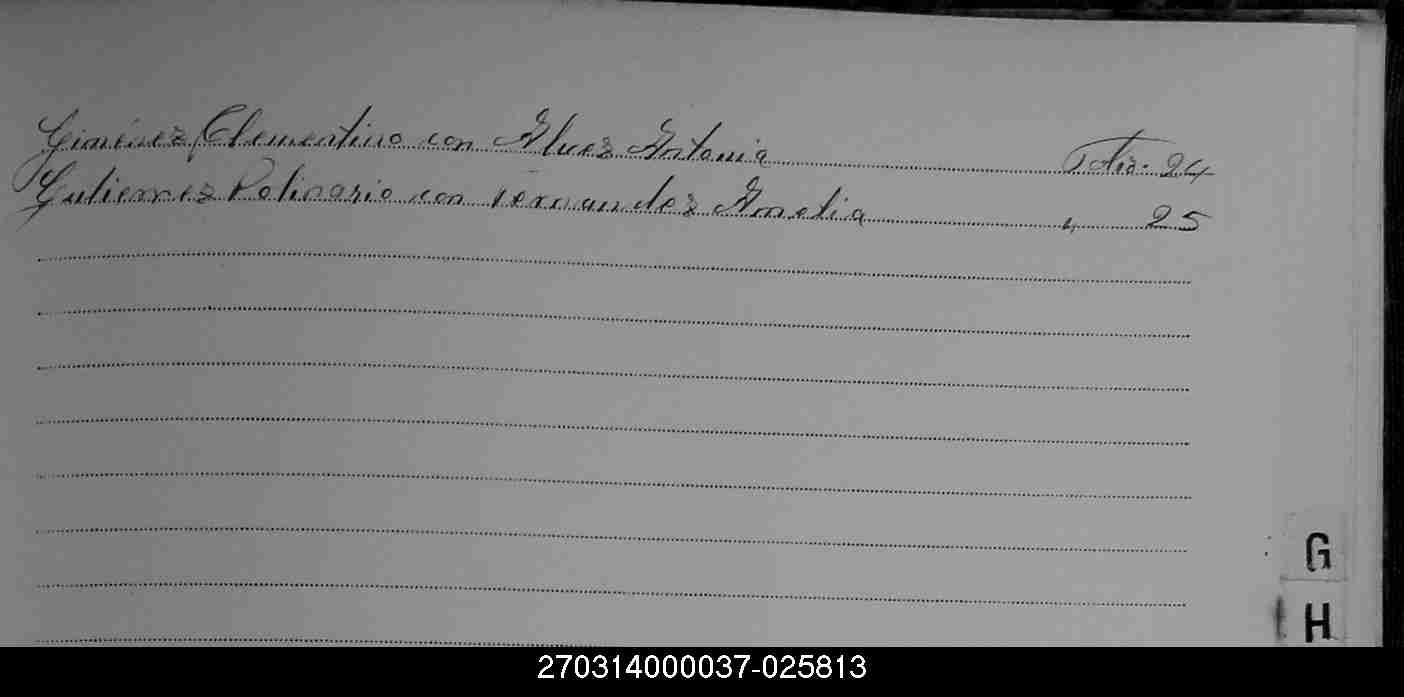 Giménez Clementino con Alvez Antonia Folio. 24
Gutierrez Polinario con Fernandez Amelia " 25
G
H
270314000037-025813